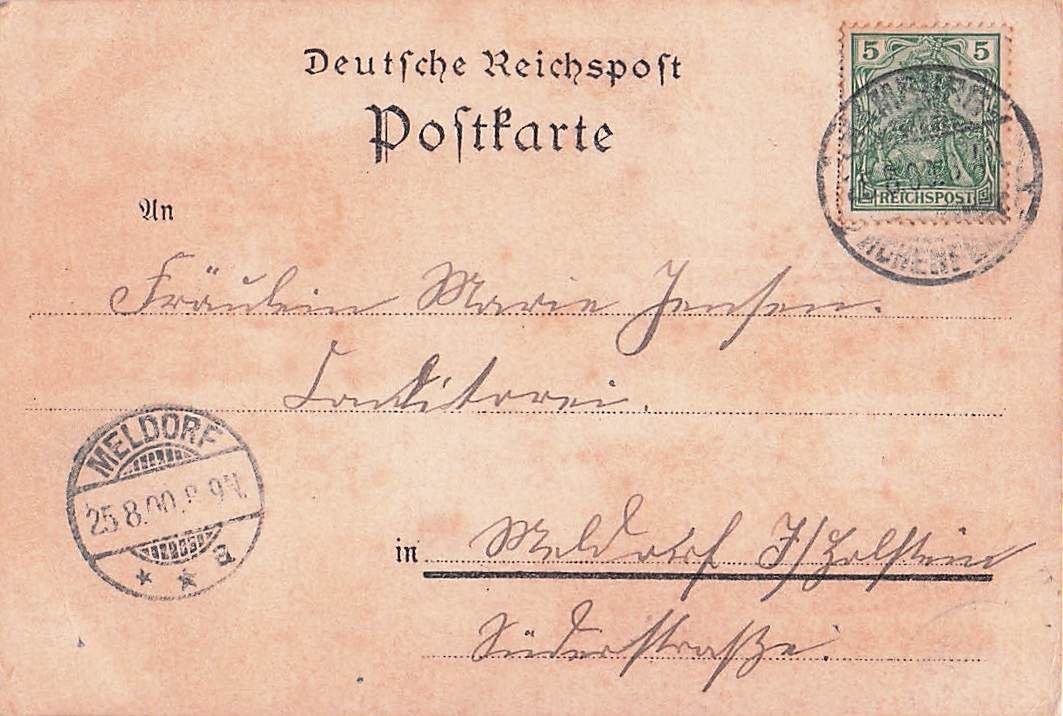 Deutsche Reichspost
Postkarte
5 5
REICHSPOST
An
Fräulein Marie Jensen.
Conditorei.
MELDORF
25.8.00. 8-9 V.
a
in Meldorf I/Holstein
Süderstraße.